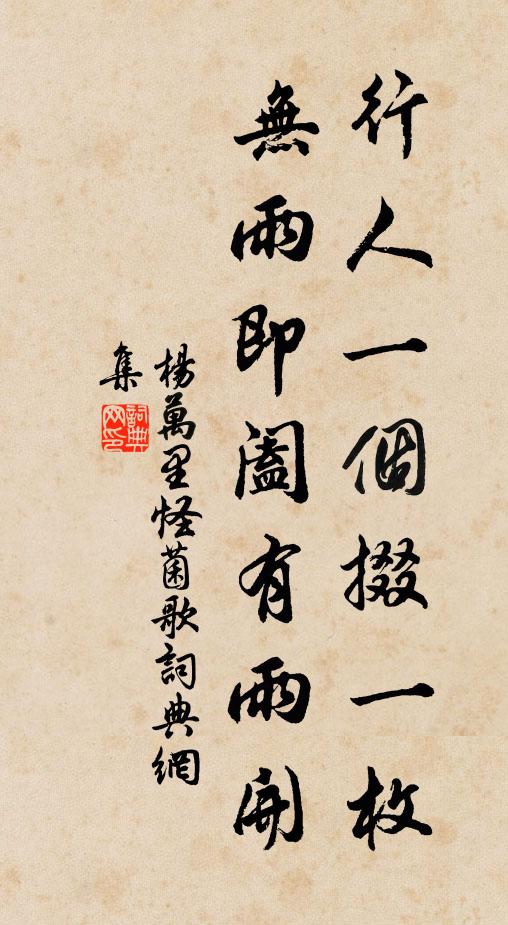 行人一個掇一枚
無雨即闔有雨開
楊萬里怪菌歌詞典網
集
詞典
网印